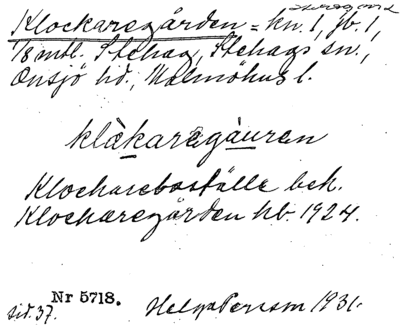 Klockaregården = kn. 1, jb. 1,
1/8 mtl. Stehag, Stehags sn.,
Onsjö hd., Malmöhus l.
klàkaregàuren
Klockareboställe bek.
Klockaregården hb. 1924.
Nr 5718.
sid. 37. Helga Persson 1931.